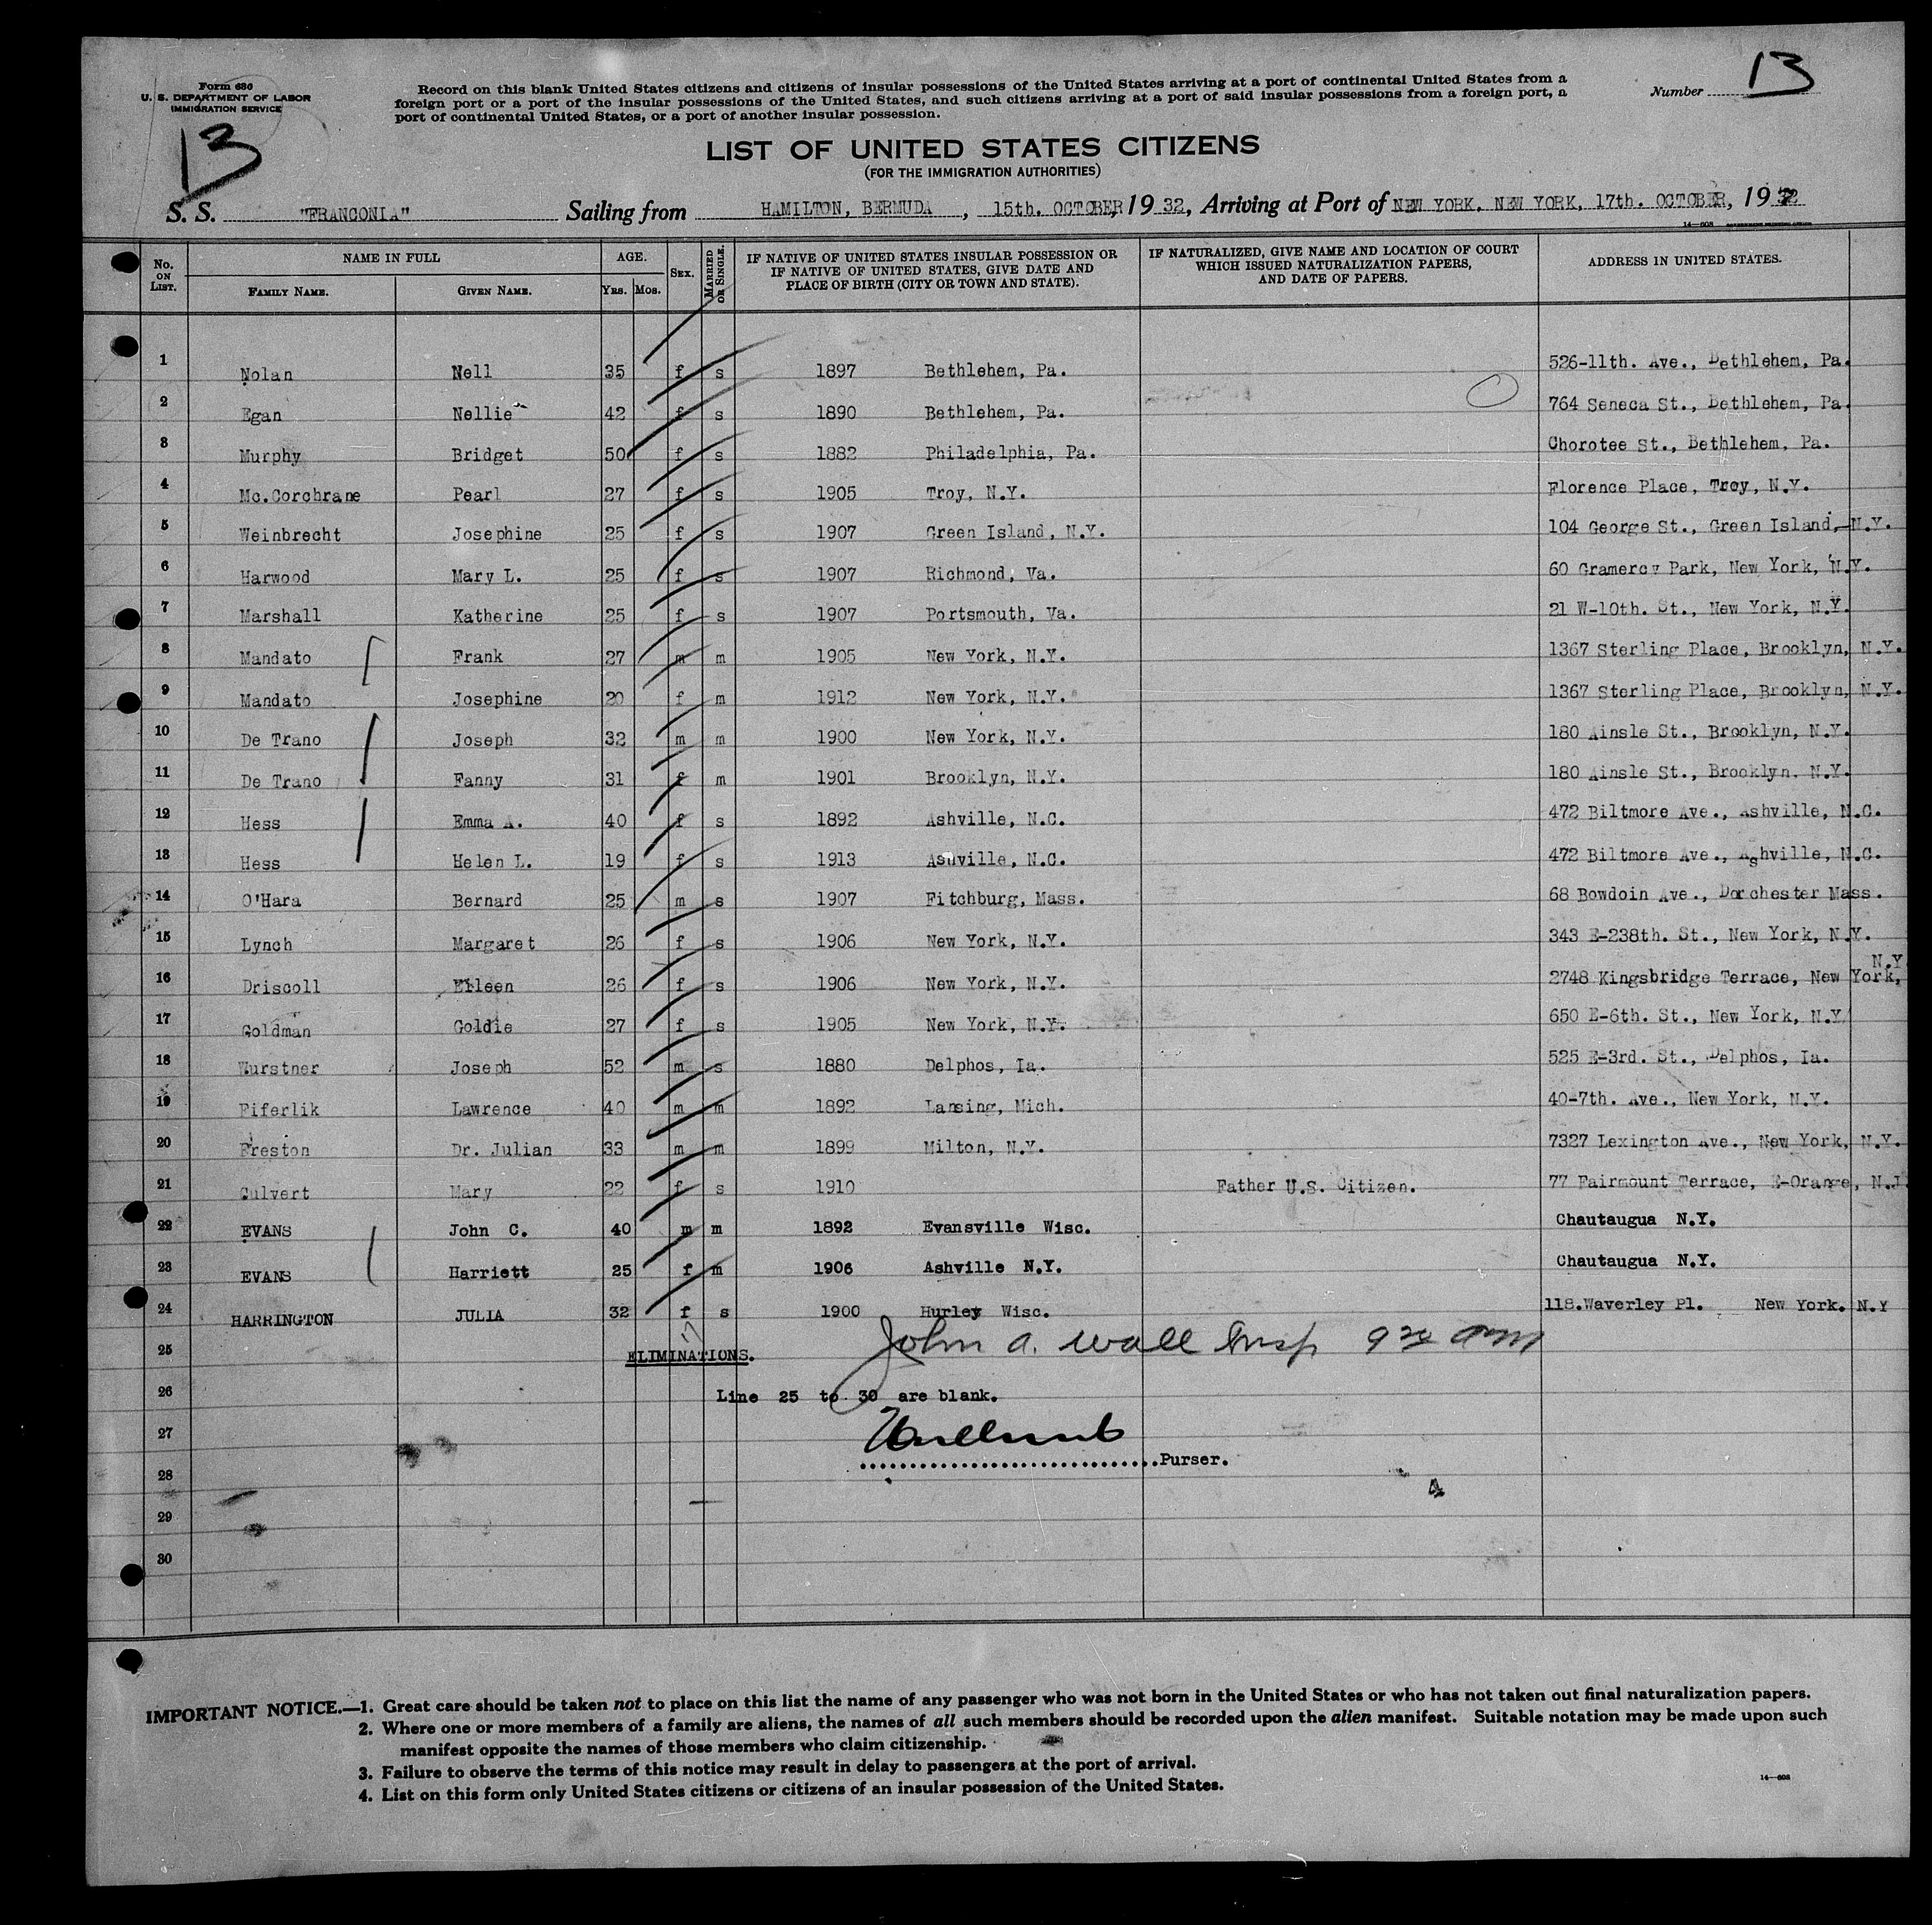 Form 630
U. S. DEPARTMENT OF LABOR
IMMIGRATION SERVICE
13
Record on this blank United States citizens and citizens of insular possessions of the United States arriving at a port of continental United States from a
foreign port or a port of the insular possessions of the United States, and such citizens arriving at a port of said insular possessions from a foreign port, a
port of continental United States, or a port of another insular possession.
Number 13
LIST OF UNITED STATES CITIZENS
(FOR THE IMMIGRATION AUTHORITIES)
S. S. "FRANCONIA" Sailing from HAMILTON, BERMUDA, 15th. OCTOBER, 1932, Arriving at Port of NEW YORK. NEW YORK, 17th. OCTOBER, 1932
14—608
No. ON LIST. NAME IN FULL FAMILY NAME. GIVEN NAME. AGE. YRS. MOS. SEX. MARRIED OR SINGLE. IF NATIVE OF UNITED STATES INSULAR POSSESSION OR IF NATIVE OF UNITED STATES, GIVE DATE AND PLACE OF BIRTH (CITY OR TOWN AND STATE). IF NATURALIZED, GIVE NAME AND LOCATION OF COURT WHICH ISSUED NATURALIZATION PAPERS, AND DATE OF PAPERS. ADDRESS IN UNITED STATES.
1 Nolan Nell 35 f s 1897 Bethlehem, Pa. 526-11th. Ave., Bethlehem, Pa.
2 Egan Nellie 42 f s 1890 Bethlehem, Pa. 764 Seneca St., Bethlehem, Pa.
3 Murphy Bridget 50 f s 1882 Philadelphia, Pa. Chorotee St., Bethlehem, Pa.
4 Mc.Corchrane Pearl 27 f s 1905 Troy, N.Y. Florence Place, Troy, N.Y.
5 Weinbrecht Josephine 25 f s 1907 Green Island, N.Y. 104 George St., Green Island, N.Y.
6 Harwood Mary L. 25 f s 1907 Richmond, Va. 60 Gramercy Park, New York, N.Y.
7 Marshall Katherine 25 f s 1907 Portsmouth, Va. 21 W-10th. St., New York, N.Y.
8 Mandato Frank 27 m m 1905 New York, N.Y. 1367 Sterling Place, Brooklyn, N.Y.
9 Mandato Josephine 20 f m 1912 New York, N.Y. 1367 Sterling Place, Brooklyn, N.Y.
10 De Trano Joseph 32 m m 1900 New York, N.Y. 180 Ainsle St., Brooklyn, N.Y.
11 De Trano Fanny 31 f m 1901 Brooklyn, N.Y. 180 Ainsle St., Brooklyn. N.Y.
12 Hess Emma A. 40 f s 1892 Ashville, N.C. 472 Biltmore Ave., Ashville, N.C.
13 Hess Helen L. 19 f s 1913 Ashville, N.C. 472 Biltmore Ave., Ashville, N.C.
14 O'Hara Bernard 25 m s 1907 Fitchburg, Mass. 68 Bowdoin Ave., Dorchester Mass.
15 Lynch Margaret 26 f s 1906 New York, N.Y. 343 E-238th. St., New York, N.Y.
16 Driscoll Eileen 26 f s 1906 New York, N.Y. 2748 Kingsbridge Terrace, New York, N.Y
17 Goldman Goldie 27 f s 1905 New York, N.Y. 650 E-6th. St., New York, N.Y
18 Wurstner Joseph 52 m s 1880 Delphos, Ia. 525 E-3rd. St., Delphos, Ia.
19 Fiferlik Lawrence 40 m m 1892 Lansing, Mich. 40-7th. Ave., New York, N.Y.
20 Freston Dr. Julian 33 m m 1899 Milton, N.Y. 7327 Lexington Ave., New York, N.Y.
21 Culvert Mary 22 f s 1910 Father U.S. Citizen. 77 Fairmount Terrace, E-Orange, N.J.
22 EVANS John C. 40 m m 1892 Evansville Wisc. Chautaugua N.Y.
23 EVANS Harriett 25 f m 1906 Ashville N.Y. Chautaugua N.Y.
24 HARRINGTON JULIA 32 f s 1900 Hurley Wisc. 118.Waverley Pl. New York. N.Y
25 ELIMINATIONS. John A. Wall Insp
26 Line 25 to 30 are blank.
27
.Purser.
28
29
30
IMPORTANT NOTICE.—1. Great care should be taken not to place on this list the name of any passenger who was not born in the United States or who has not taken out final naturalization papers.
2. Where one or more members of a family are aliens, the names of all such members should be recorded upon the alien manifest. Suitable notation may be made upon such
manifest opposite the names of those members who claim citizenship.
3. Failure to observe the terms of this notice may result in delay to passengers at the port of arrival.
4. List on this form only United States citizens or citizens of an insular possession of the United States.
14—608